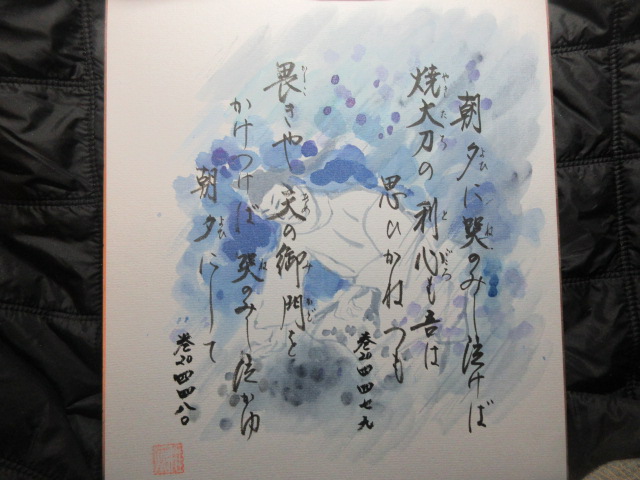 朝夕に哭のみし泣けば
焼大刀の利心も吾は
思ひかねつも
巻20四四七九
畏きや天の御門を
かけつけば哭のみし泣かゆ
朝夕にして
巻20四四八〇